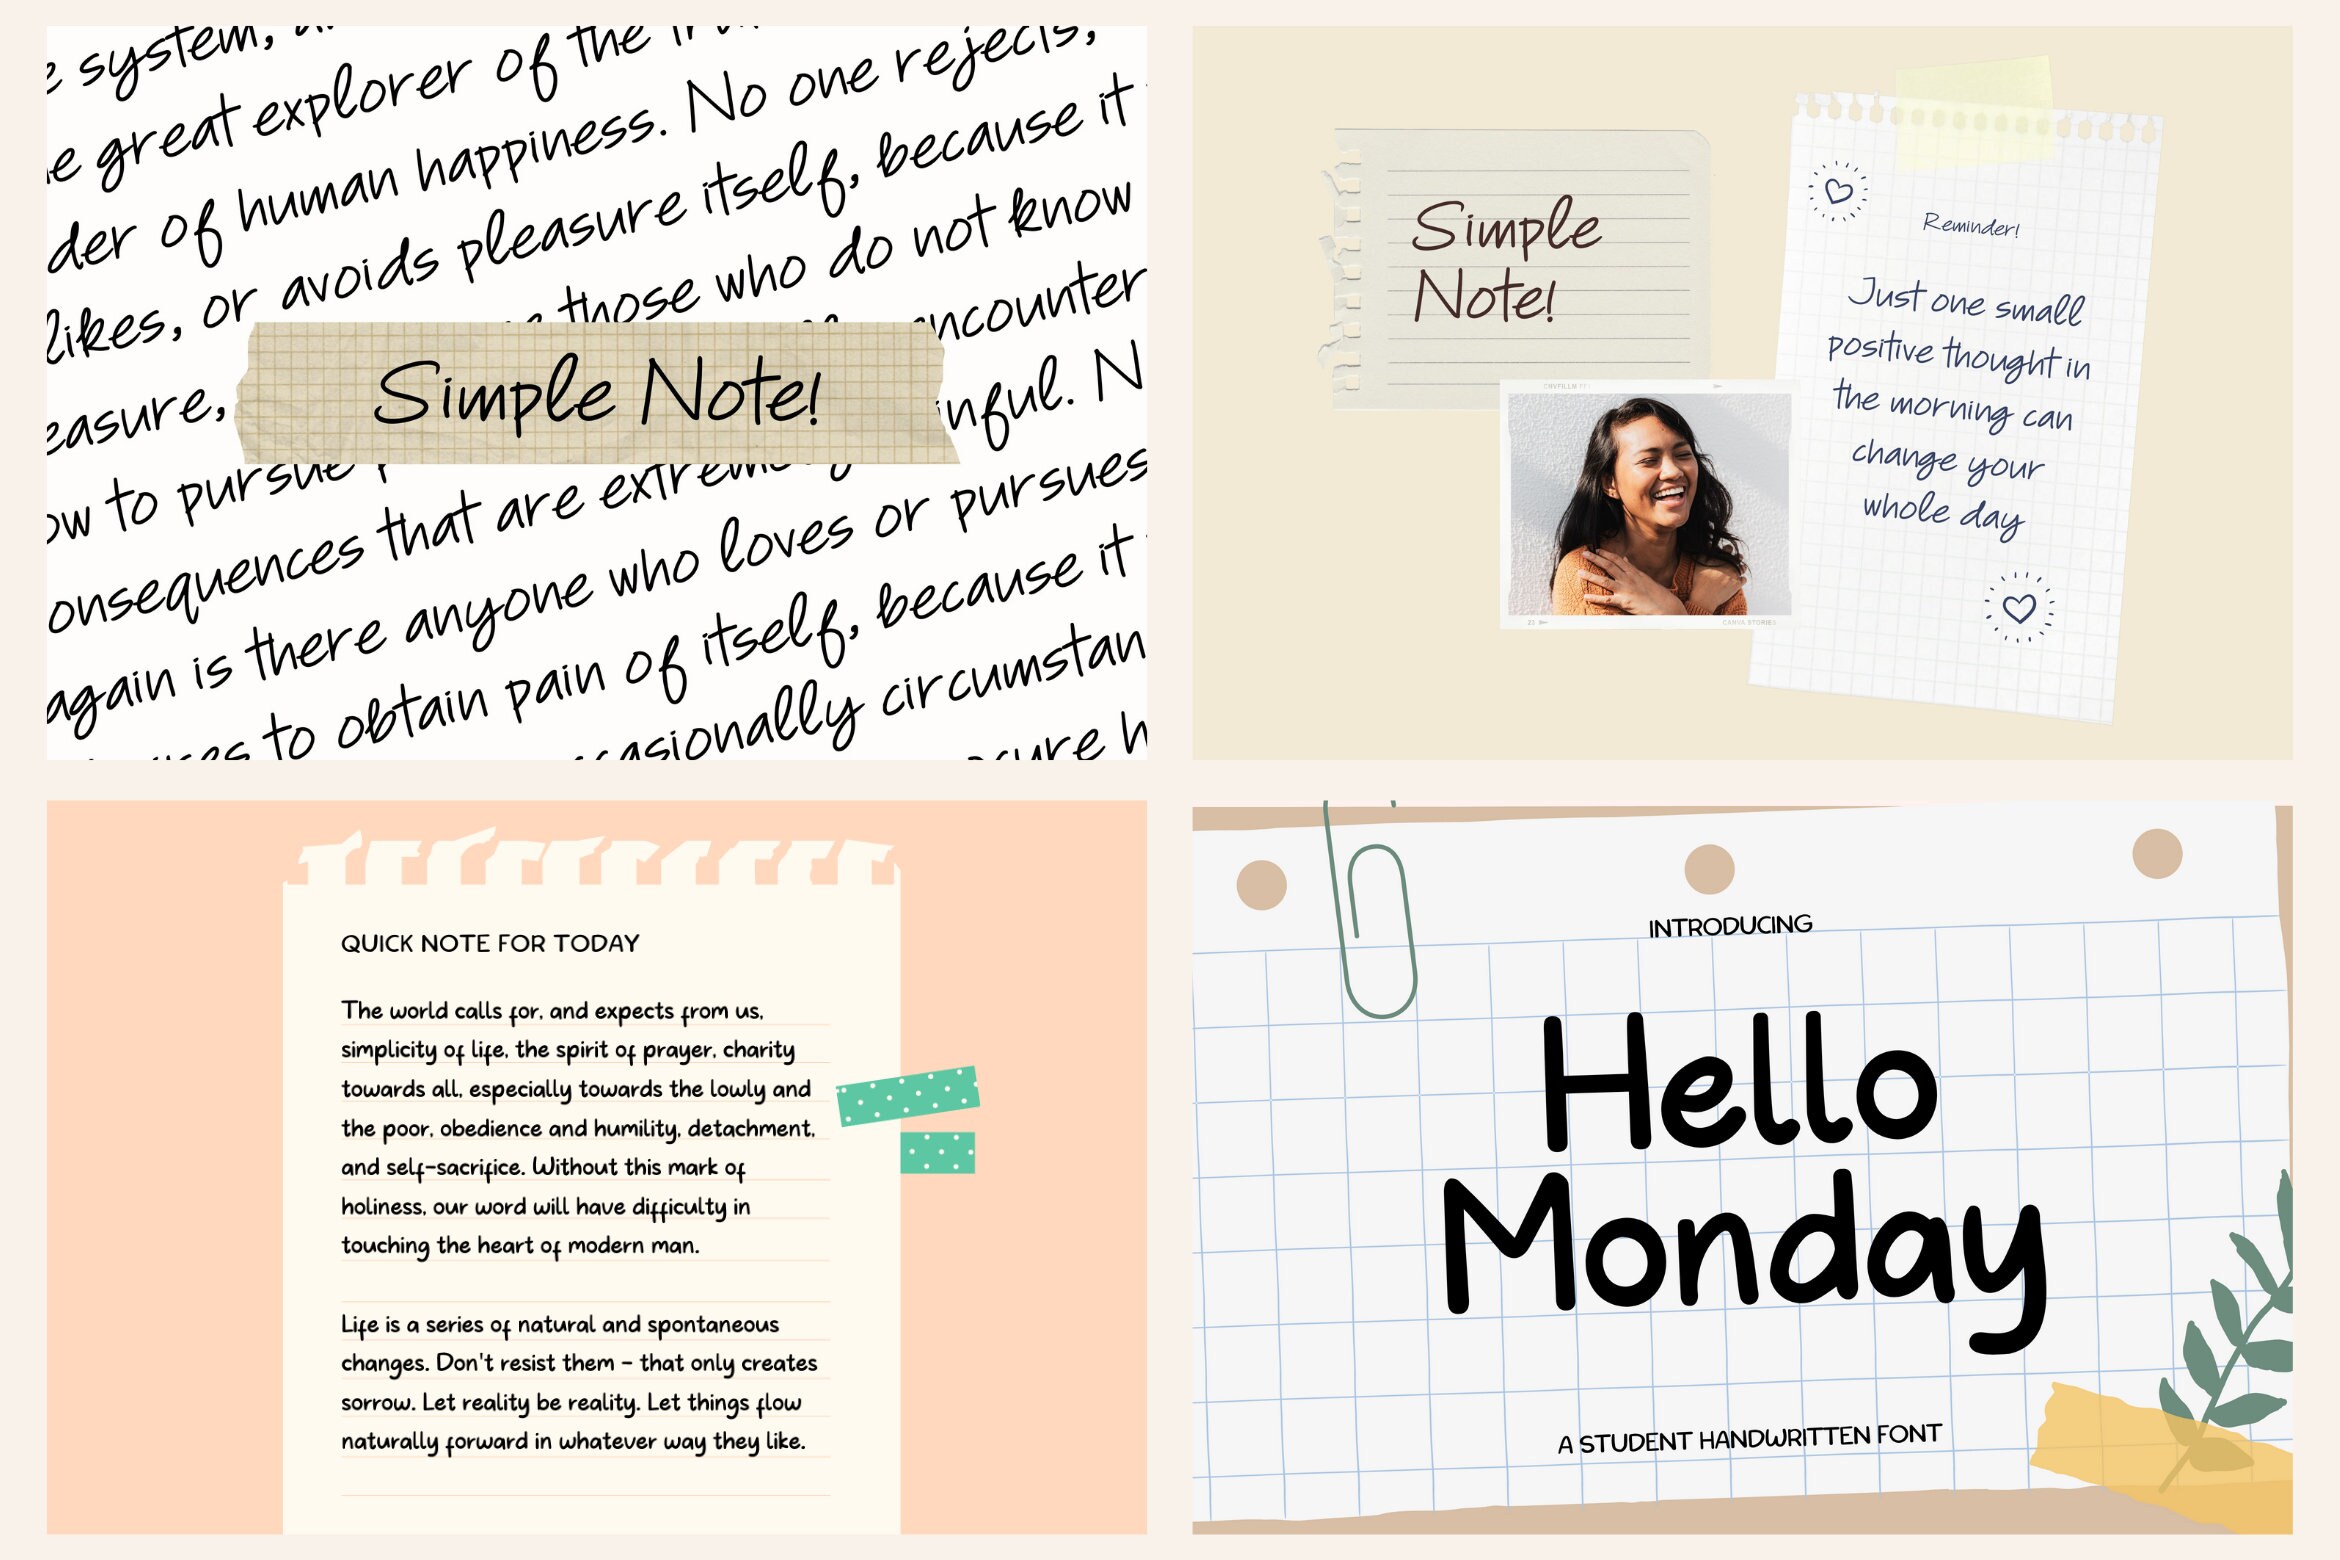 e system,
e great explorer of the
der of human happiness. No one rejects,
likes, or avoids pleasure itself, because it
those who do not know
encounter
easure,
Simple Note!
inful. N
ow to pursue
onsequences that are
again is there anyone who loves or pursues
to obtain pain of itself, because it
circumstan
Simple
Note!
Reminder!
Just one small
positive thought in
the morning can
change your
whole day
23
CANVA STORIES
QUICK NOTE FOR TODAY
The world calls for, and expects from us,
simplicity of life, the spirit of prayer, charity
towards all, especially towards the lowly and
the poor, obedience and humility, detachment,
and self-sacrifice. Without this mark of
holiness, our word will have difficulty in
touching the heart of modern man.
Life is a series of natural and spontaneous
changes. Don't resist them - that only creates
sorrow. Let reality be reality. Let things flow
naturally forward in whatever way they like.
INTRODUCING
Hello
Monday
A STUDENT HANDWRITTEN FONT